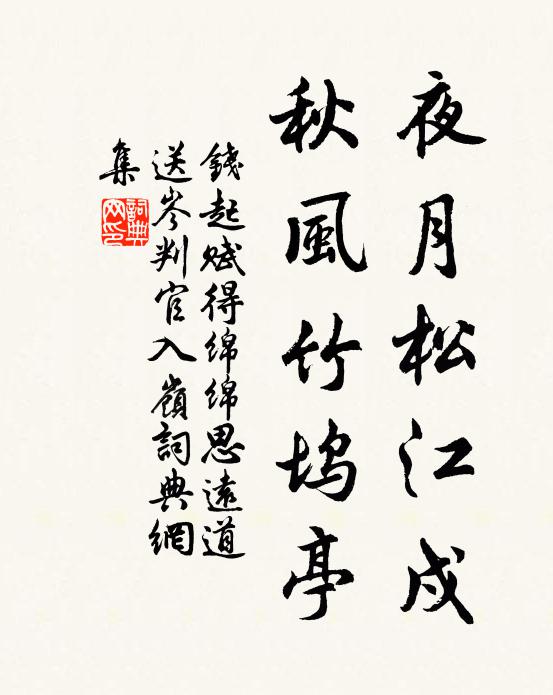 夜月松江戍
秋風竹塢亭
錢起賦得綿綿思遠道
送岑判官入嶺詞典網
集
詞典網印